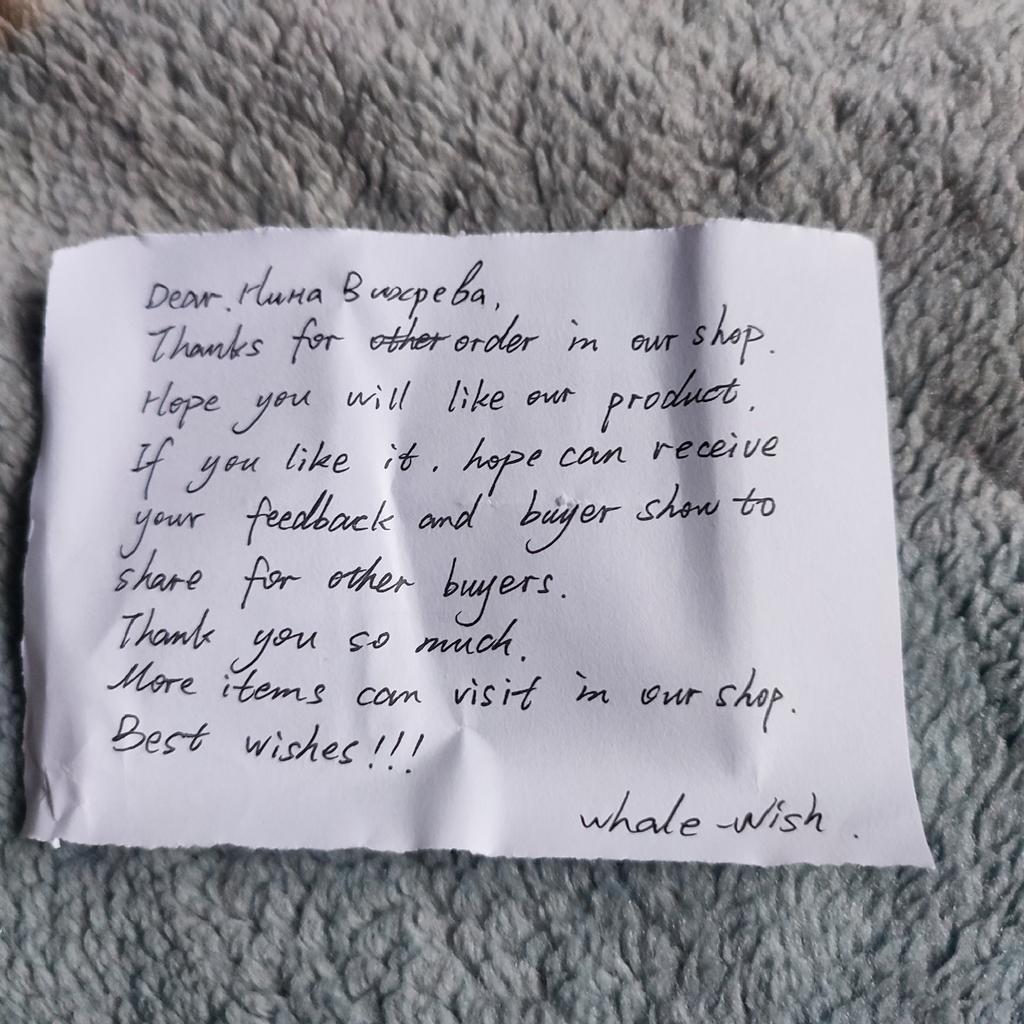 Dear. Нина Вихрева,
Thanks for other order in our shop.
Hope you will like our product.
If you like it. hope can receive
your feedback and buyer show to
share for other buyers.
Thank you so much.
More items can visit in our shop.
Best wishes!!!
whale-wish.